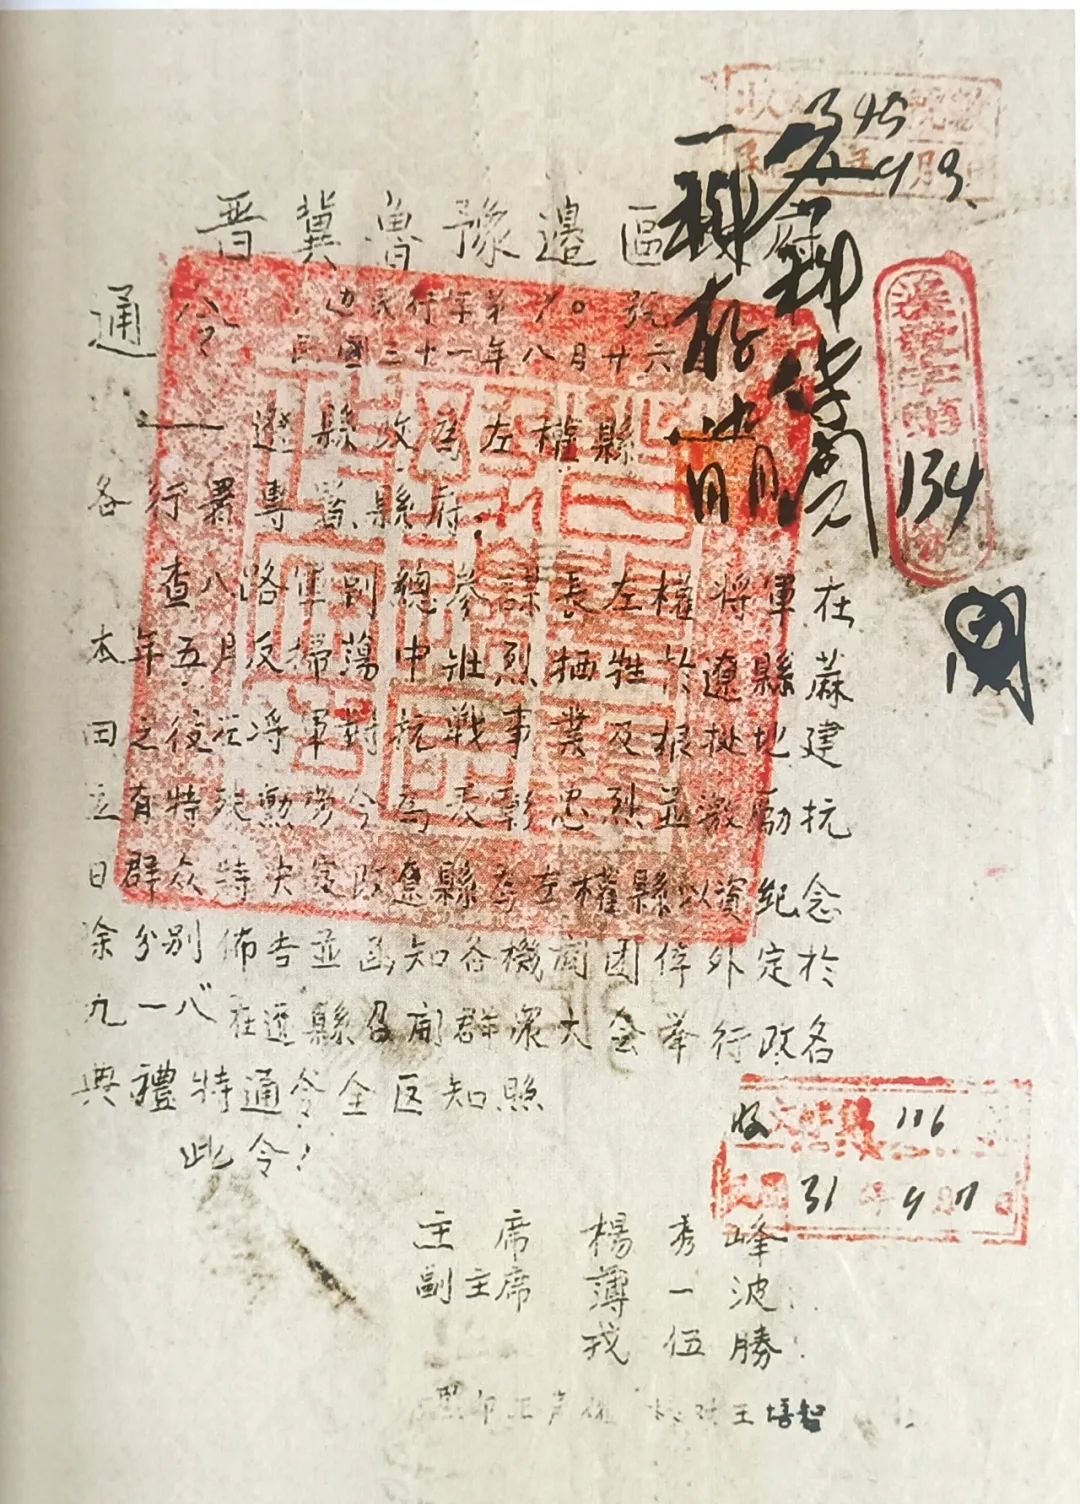 晋冀魯豫邊區 府
通令
民行 字第 九〇 號
民國三十一年八月廿六
遼縣改為左權縣
各行署專署縣府:
查八路軍副總參謀長左權將軍在
本年五月反掃蕩中壯烈牺牲於遼縣蔴
田之役 将軍對抗戰事業及根據地建
立有特殊勳勞今為表彰忠烈並激勵抗
日群众特决定改遼縣為左權縣以資紀念
除分别佈告並函知各機関团体外定於
九一八在遼縣召開群衆大会举行改名
典禮特通令全区知照
此令!
主席 楊秀峰
副主席 薄一波
戎伍勝
校对王培智
134
閱
收文 字 116
民國 31 年 9 月